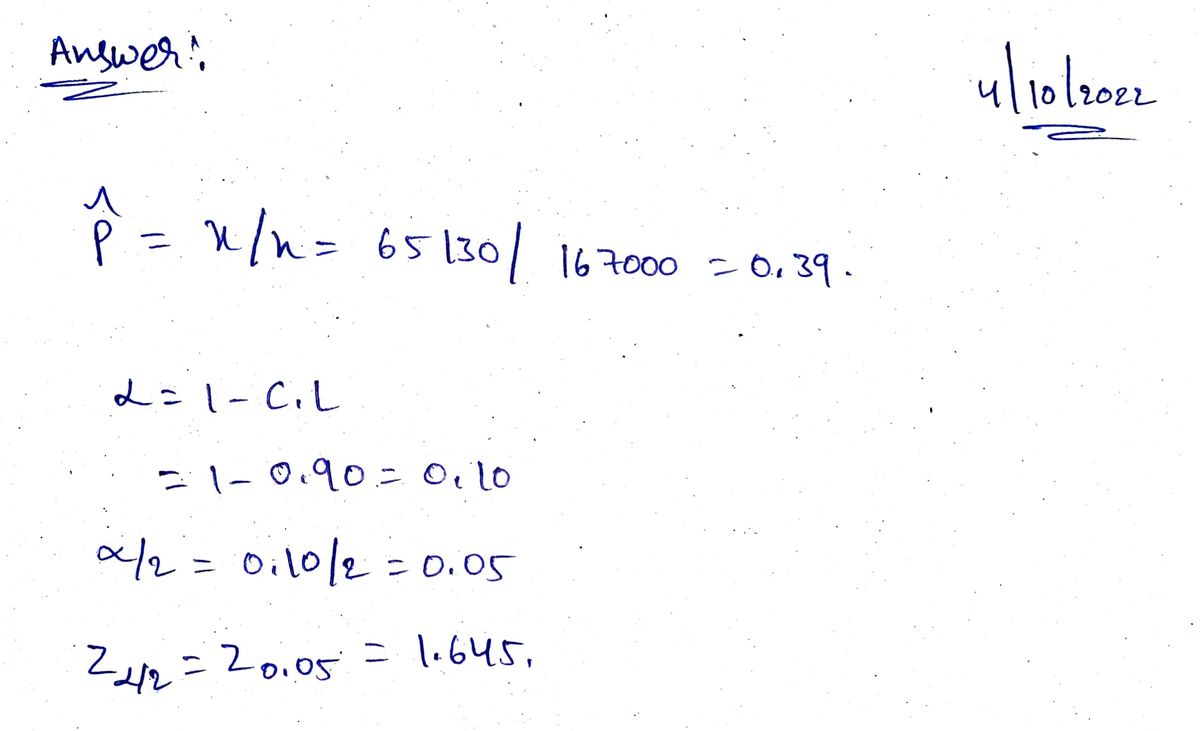 Answer:
4/10/2022
p̂ = x/n = 65130/167000 = 0.39.
α = 1 - C.L
= 1 - 0.90 = 0.10
α/2 = 0.10/2 = 0.05
Zα/2 = Z0.05 = 1.645.